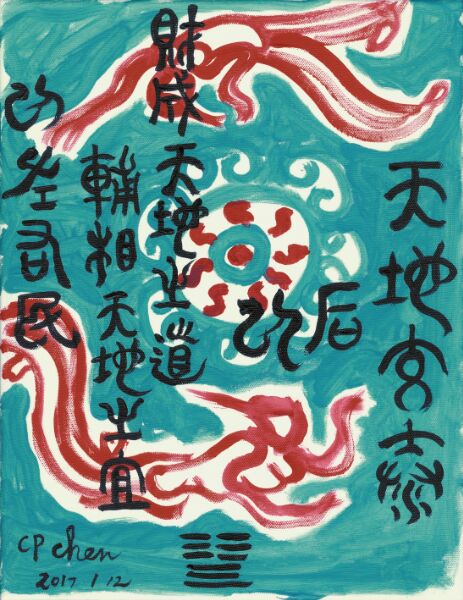 天地交泰
后以
財成天地之道
輔相天地之宜
以左右民
CP chen
2017 1/12